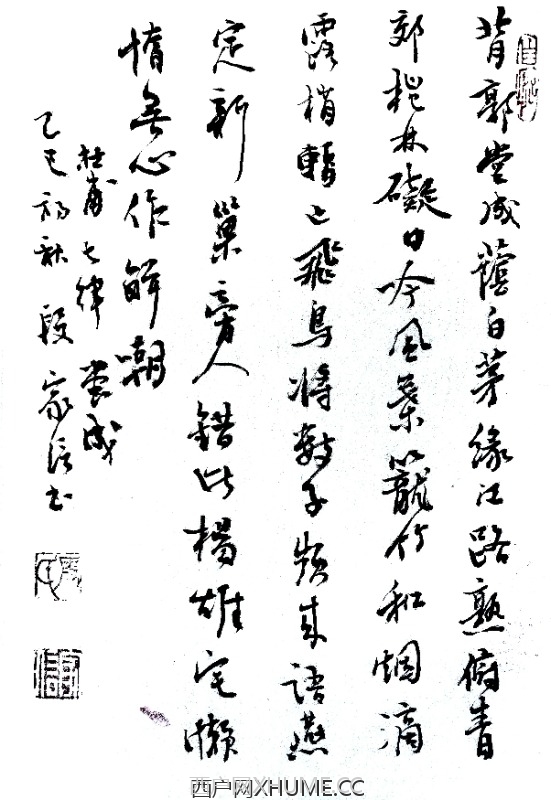 背郭堂成蔭白茅緣江路熟俯青
郊桤林礙日吟風葉籠竹和烟滴
露梢暫止飛鳥將數子頻来語燕
定新巢旁人錯比楊雄宅懶
惰無心作解嘲
杜甫七律堂成
乙巳初秋段家信书
西户网XHUME.CC